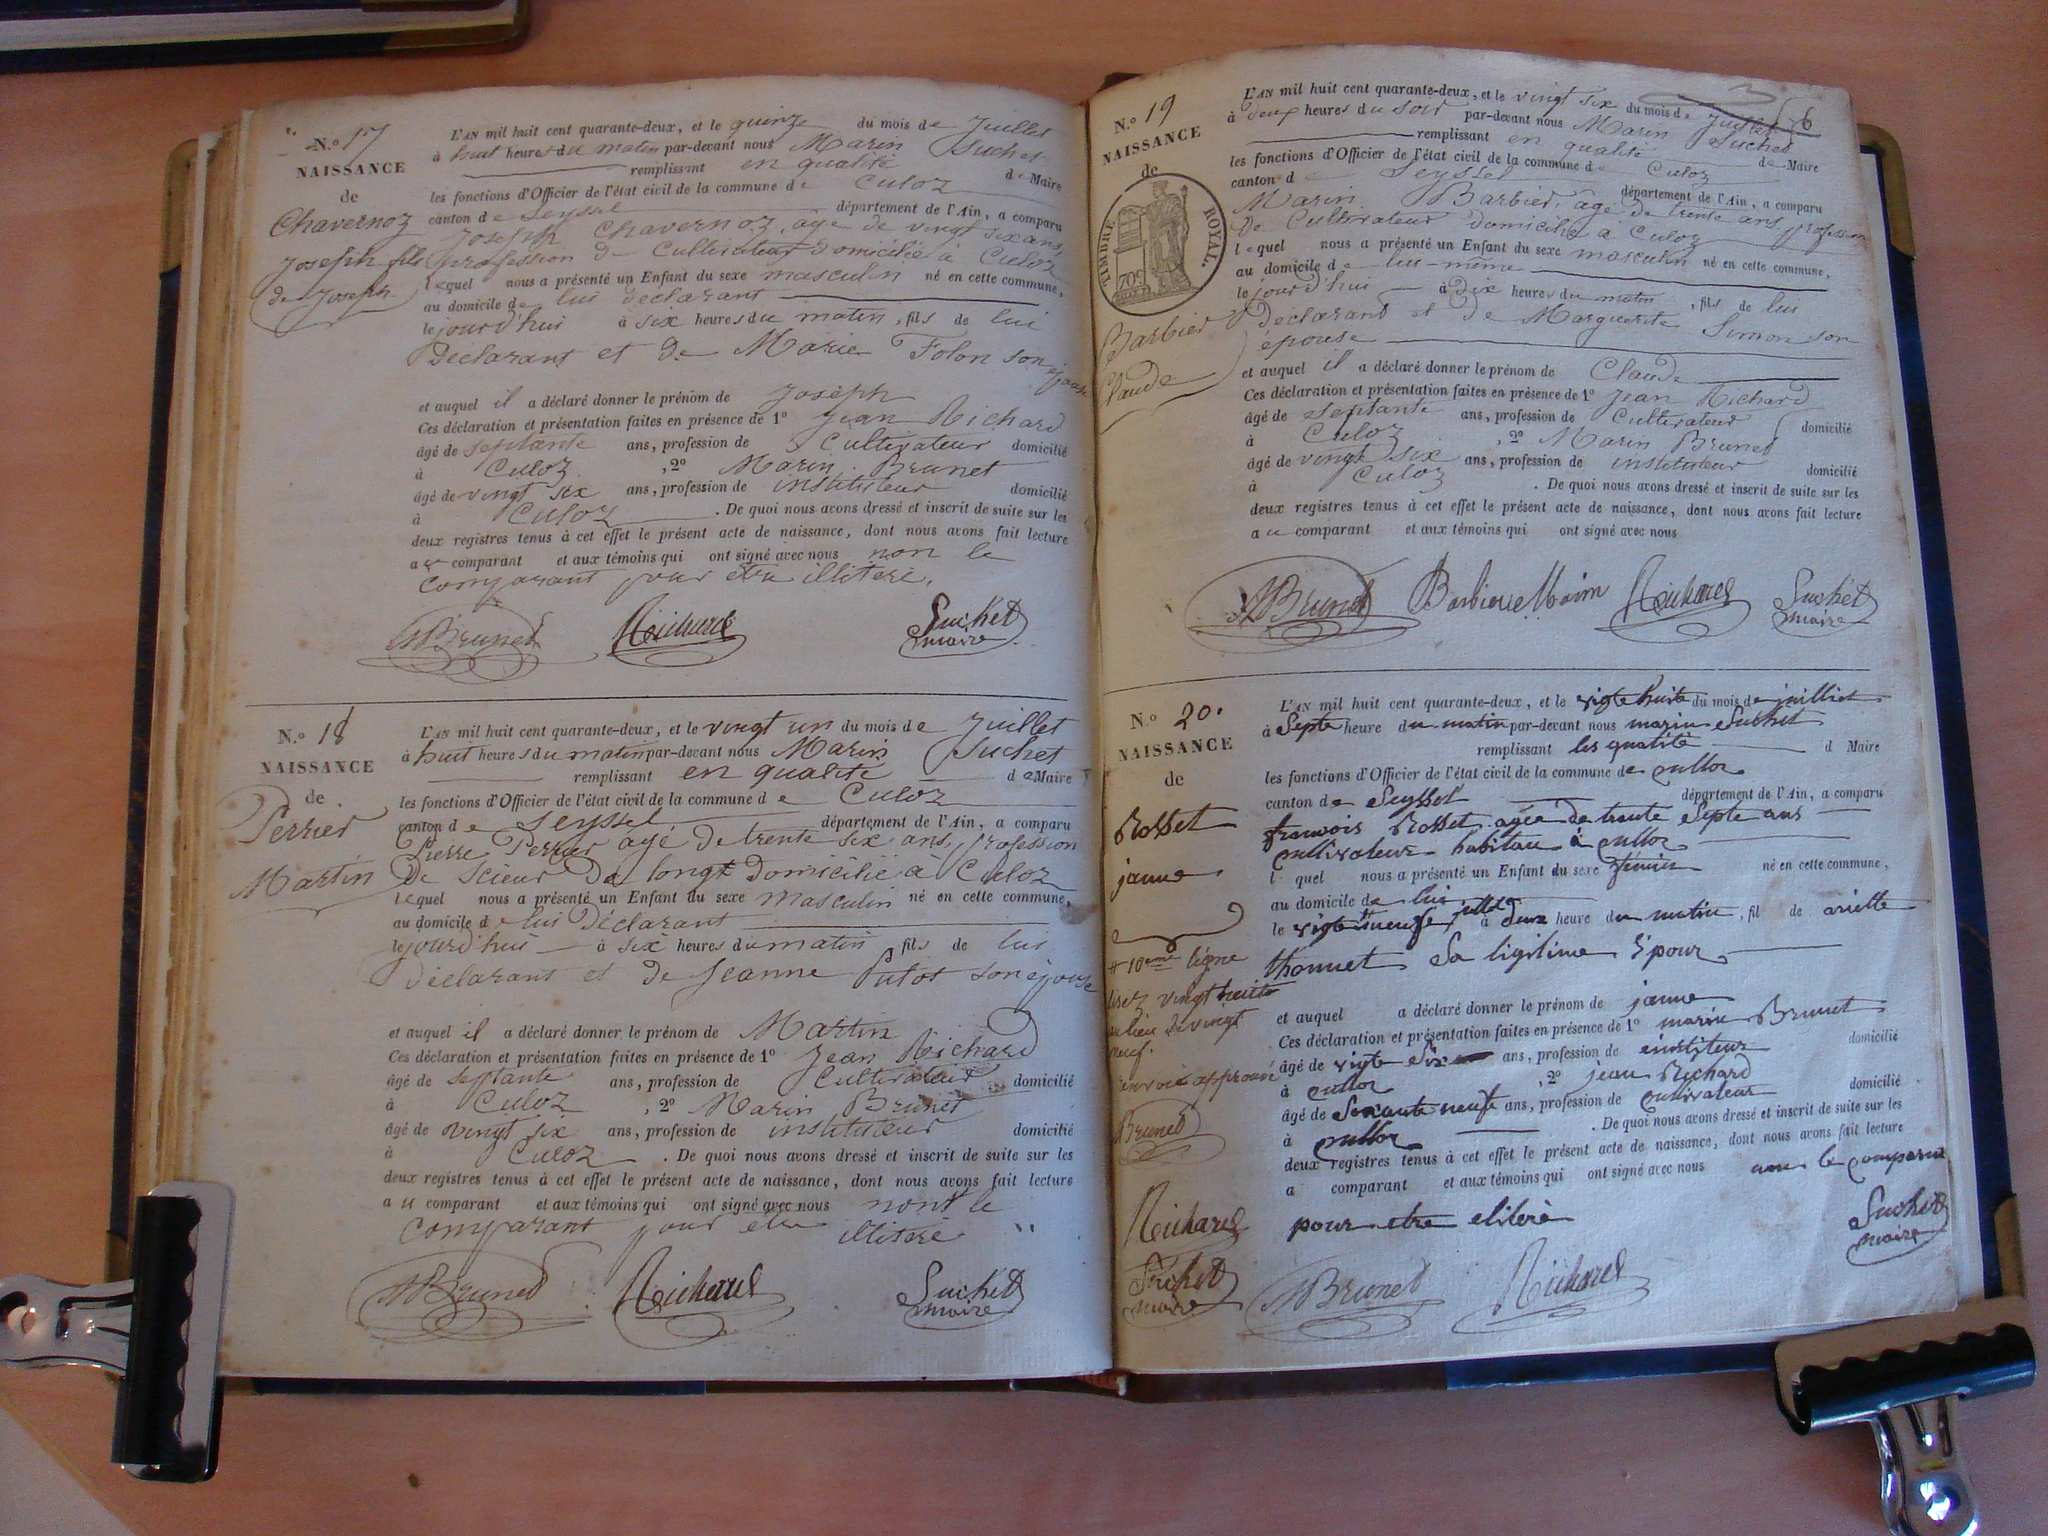 N.º 17
NAISSANCE
de
Chavernoz
Joseph fils
de Joseph
L'AN mil huit cent quarante-deux, et le quinze du mois de Juillet
à huit heures du matin par-devant nous Marin Suchet
remplissant en qualité de Maire
les fonctions d'Officier de l'état civil de la commune de Culoz
canton de Seyssel département de l'Ain, a comparu
Joseph Chavernoz, agé de vingt six ans,
profession de Cultivateur domicilié à Culoz
lequel nous a présenté un Enfant du sexe masculin né en cette commune,
au domicile de lui déclarant
le jourd'hui à six heures du matin, fils de lui
Déclarant et de Marie Folon son épouse
et auquel il a déclaré donner le prénom de Joseph
Ces déclaration et présentation faites en présence de 1º Jean Richard
âgé de septante ans, profession de Cultivateur domicilié
à Culoz, 2º Marin Brunet
âgé de vingt six ans, profession de instituteur domicilié
à Culoz. De quoi nous avons dressé et inscrit de suite sur les
deux registres tenus à cet effet le présent acte de naissance, dont nous avons fait lecture
au comparant et aux témoins qui ont signé avec nous non le
comparant pour être illiteré.
MBrunet Richard Suchet
maire
N.º 18
NAISSANCE
de
Perrier
Martin
L'AN mil huit cent quarante-deux, et le vingt un du mois de Juillet
à huit heures du matin par-devant nous Marin Suchet
remplissant en qualité de Maire
les fonctions d'Officier de l'état civil de la commune de Culoz
canton de Seyssel département de l'Ain, a comparu
Pierre Perrier agé de trente six ans, profession
De Scieur De longt Domicilié à Culoz
lequel nous a présenté un Enfant du sexe masculin né en cette commune,
au domicile de lui Déclarant
le jourd'hui à six heures du matin fils de lui
Déclarant et de Jeanne Putot son épouse
et auquel il a déclaré donner le prénom de Martin
Ces déclaration et présentation faites en présence de 1º Jean Richard
âgé de septante ans, profession de Cultivateur domicilié
à Culoz, 2º Marin Brunet
âgé de vingt six ans, profession de instituteur domicilié
à Culoz. De quoi nous avons dressé et inscrit de suite sur les
deux registres tenus à cet effet le présent acte de naissance, dont nous avons fait lecture
au comparant et aux témoins qui ont signé avec nous nont le
comparant pour être illiteré
MBrunet Richard Suchet
maire
76
N.º 19
NAISSANCE
de
TIMBRE ROYAL.
Barbier
Claude
L'AN mil huit cent quarante-deux, et le vingt six du mois de Juillet
à deux heures du soir par-devant nous Marin Suchet
remplissant en qualité de Maire
les fonctions d'Officier de l'état civil de la commune de Culoz
canton de Seyssel département de l'Ain, a comparu
Marin Barbier, âgé de trente ans, profession
De Cultivateur Domicilié à Culoz
lequel nous a présenté un Enfant du sexe masculin né en cette commune,
au domicile de lui-même
le jourd'hui à dix heures du matin, fils de lui
déclarant et de Marguerite Simon son
épouse
et auquel il a déclaré donner le prénom de Claude
Ces déclaration et présentation faites en présence de 1º Jean Richard
âgé de septante ans, profession de Cultivateur domicilié
à Culoz, 2º Marin Brunet
âgé de vingt six ans, profession de instituteur domicilié
à Culoz. De quoi nous avons dressé et inscrit de suite sur les
deux registres tenus à cet effet le présent acte de naissance, dont nous avons fait lecture
au comparant et aux témoins qui ont signé avec nous
MBrunet Richard Suchet
maire
N.º 20.
NAISSANCE
de
Rosset
janne
# 10eme ligne
lisez vingt huit
au lieu de vingt
neuf.
renvoi approuvé
Brunet
Richard
Suchet
maire
L'AN mil huit cent quarante-deux, et le vigte huite du mois de juilliet
à Septe heure du matin par-devant nous marin Suchet
remplissant les qualité d Maire
les fonctions d'Officier de l'état civil de la commune de culloz
canton de Seyssel département de l'Ain, a comparu
francois Rosset agée de trante Septe ans
cultivateur habitan à culloz
l quel nous a présenté un Enfant du sexe féminin né en cette commune,
au domicile de lui
le vigte neufe à deux heure du matin, fil de ariette
thonnet Sa ligitime Epour
et auquel a déclaré donner le prénom de janne
Ces déclaration et présentation faites en présence de 1º marin Brunet
âgé de vigte Six ans, profession de institeur domicilié
à culloz, 2º jean Richard
âgé de Soxante neufe ans, profession de cultivateur domicilié
à culloz. De quoi nous avons dressé et inscrit de suite sur les
deux registres tenus à cet effet le présent acte de naissance, dont nous avons fait lecture
a comparant et aux témoins qui ont signé avec nous non le comparan
pour etre eliteré
Suchet
maire
MBrunet Richard